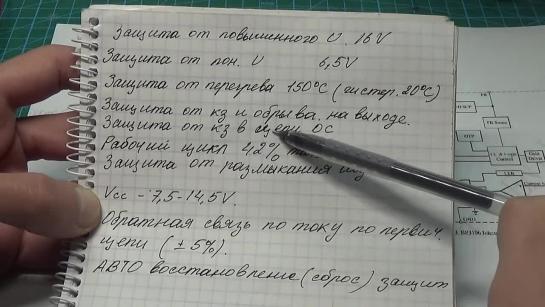 Защита от повышенного U. 16V
Защита от пон. U 6,5V
Защита от перегрева 150°С (гистер. 20°С)
Защита от кз и обрыва на выходе.
Защита от кз в цепи ОС
Рабочий цикл 42%
Защита от размыкания
Vcc - 7,5-14,5V.
Обратная связь по току по первич.
цепи (±5%).
АВТО восстановление (сброс) защит